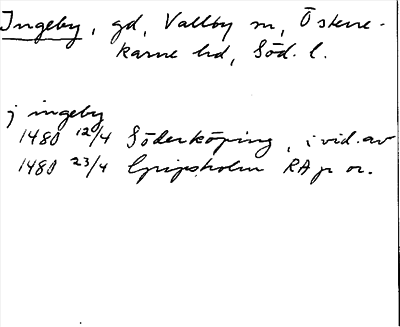 Ingeby, gd, Vallby sn, Östene-
karne hd, Söd. l.
j ingeby
1480 12/4 Söderköping, i vid. av
1480 23/4 Gripsholm RA p or.